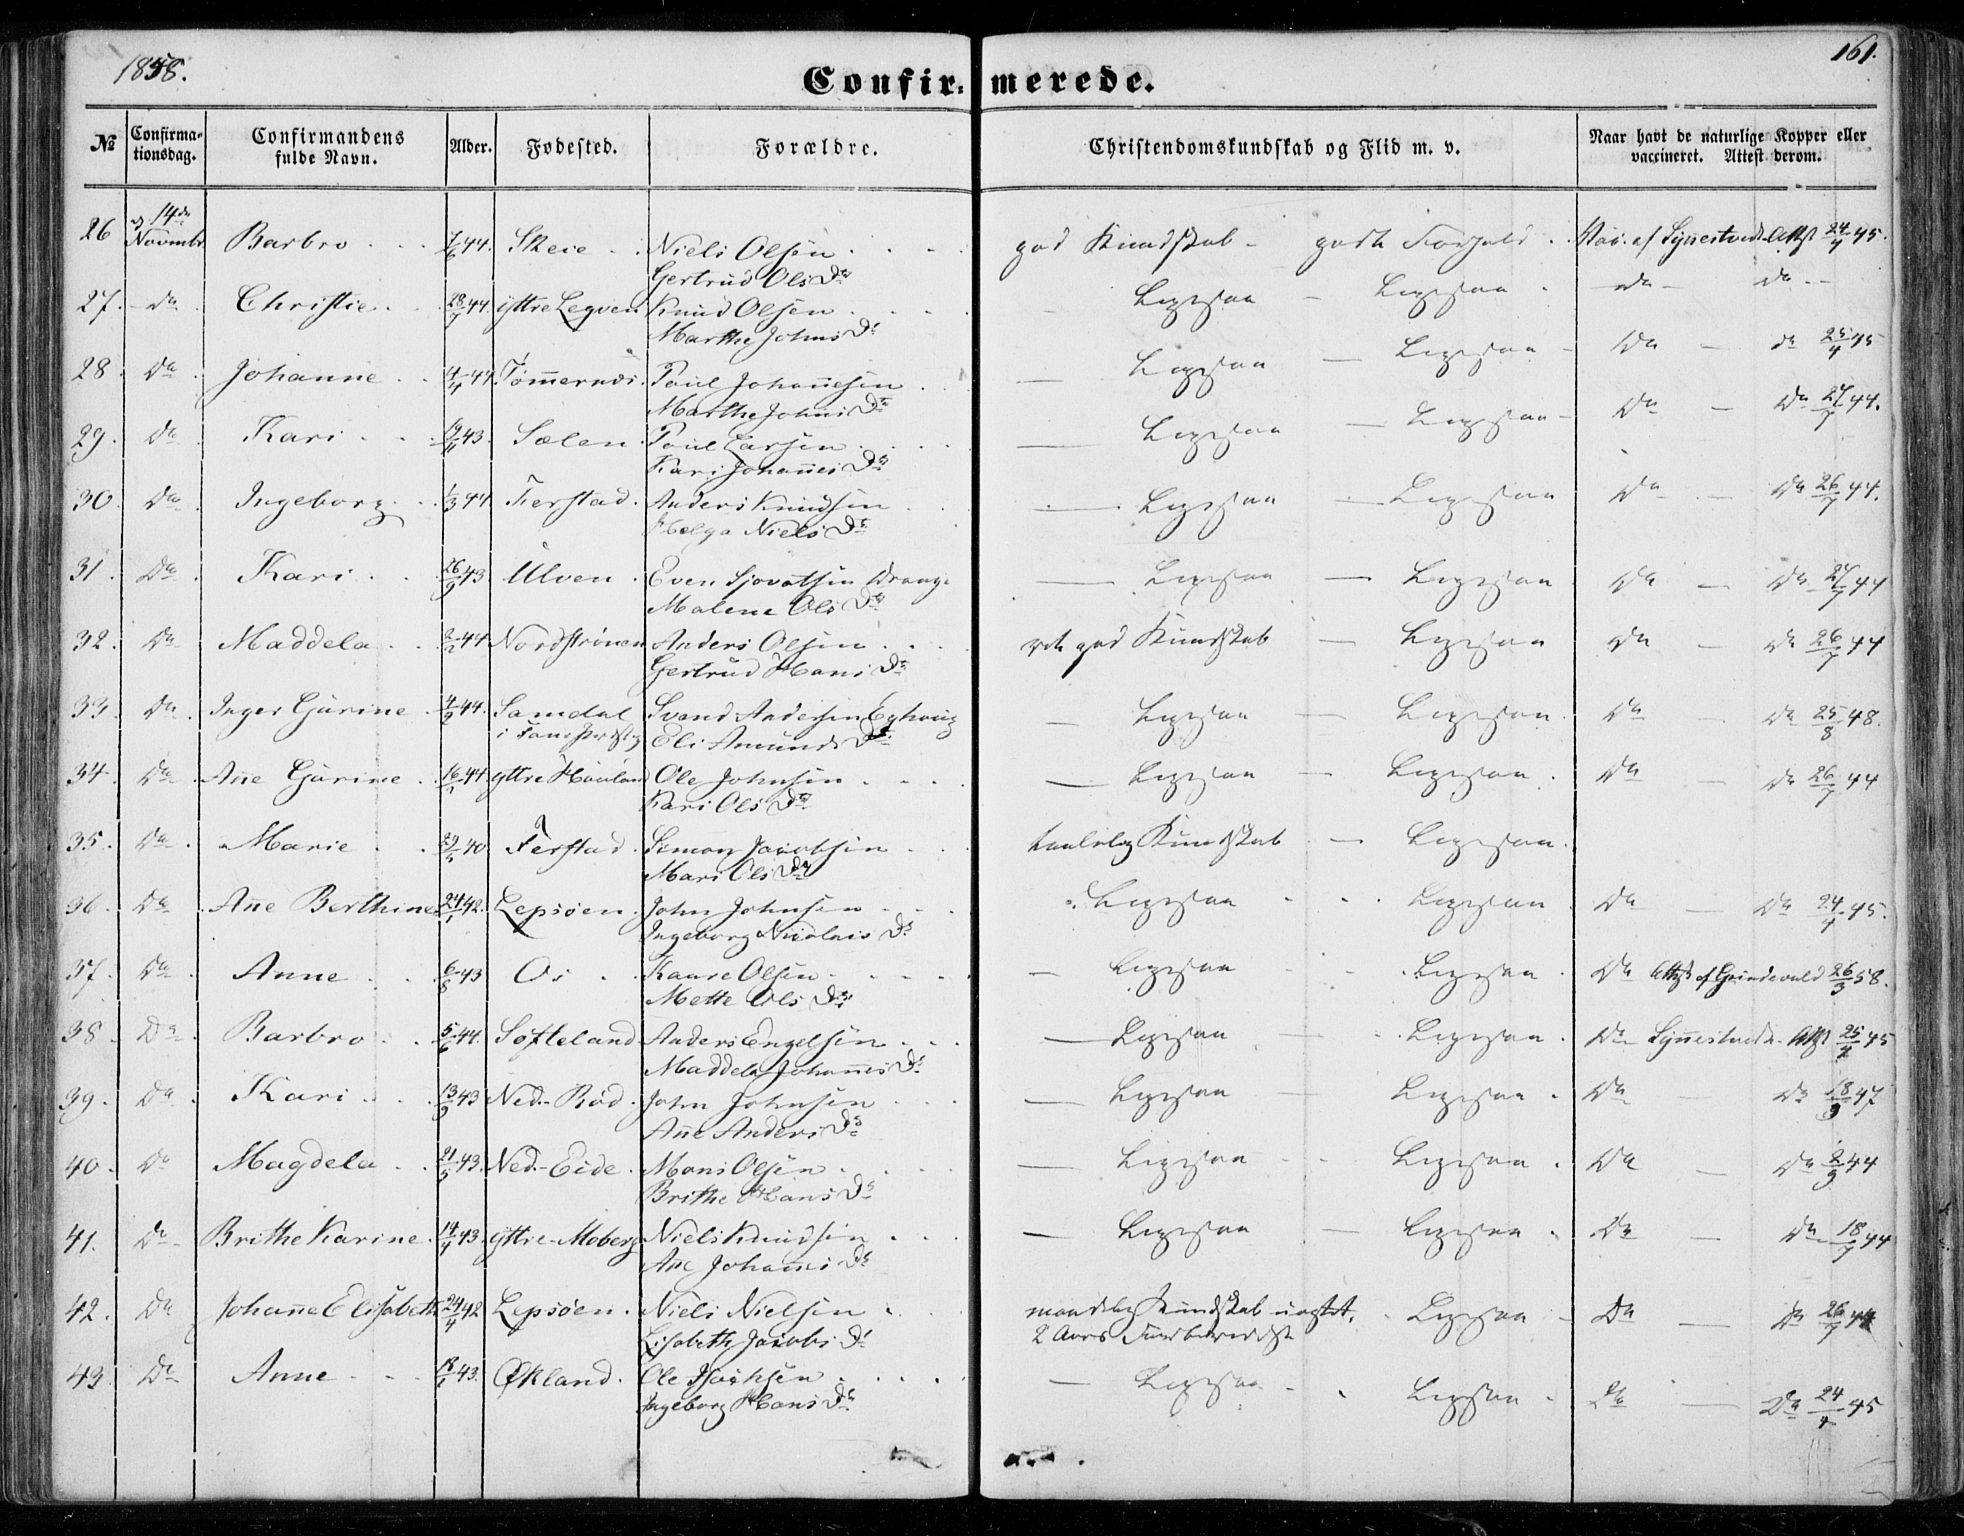 1858.
161.
Confirmerede.
№ Confirmationsdag. Confirmandens fulde Navn. Alder. Fødested. Forældre. Christendomskundskab og Flid m. v. Naar havt de naturlige Kopper eller vaccineret. Attest derom.
26 14de Novembr Barbro 44. Skeie Niels Olsen god Kundskab - godt Forhold. Vac. af Synnestvedt Attst 24/4 45.
Gertrud Ols Dr
27. do Christie 28/7 44. yttre Legven Knud Olsen Ligesaa - Ligesaa do do
Marthe Johns Dr
28. do Johanne 4/4 44. Tømmernæs. Poul Johannesen Ligesaa - Ligesaa Do do 25/4 45
Marthe Johns Dr
29. do Kari 43. Sælen. Poul Larsen Ligesaa - Ligesaa Do - Do 27/7 44.
Kari Johannes Dr
30. Do Ingeborg 1/3 44 Ferstad. Anders Knudsen Ligesaa - Ligesaa Do - Do 26/7 44.
Helga Niels Dr
31. Do Kari 26/9 43 Ulven. Even Sjovatsen Drange Ligesaa - Ligesaa Do - Do 27/7 44
Malene Ols Dr
32. Do Maddela 44 Nordstrønen Anders Olsen ret god Kundskab - Ligesaa Do - Do 26/7 44
Gertrud Hans Dr
33. Do Inger Gurine 4/9 44. Samdal Svend Andersen Ligesaa - Ligesaa. Do - Do 25/8 48.
i Fane Eli Amunds Dr
34. Do Ane Gurine 44 yttre Hauland Ole Johnsen Ligesaa - Ligesaa. Do - Do 26/7 44
Kari Ols Dr
35. Do Marie 40 Ferstad. Simon Jacobsen taalelig Kundskab - Ligesaa.
Mari Ols Dr
36. Do Ane Berthine 42. Lepsøen. John Johnsen Ligesaa Ligesaa Do - Do 24/4 45.
Ingeborg Nicolais Dr
37. Do Anne 6/8 43 Os Kaare Olsen - Ligesaa Ligesaa Do Attst af Grindevald 26/3 58.
Mette Ols Dr
38 Do Barbro 5/6 44. Søfteland Anders Engelsen Ligesaa Ligesaa. Do Synnestvedt. Attst 25/4 45
Maddela Johannes Dr
39. Do Kari 13/9 43 Ned.-Rød. John Johnsen Ligesaa - Ligesaa. Do - Do 18/9 47
Ane Anders Dr
40. Do Magdela 43. Ned.-Eide. Mons Olsen Ligesaa Ligesaa. Do - Do 2/9 44
Brithe Hans Dr
41. Do Brithe Karine. 14/4 43. yttre-Moberg Niels Knudsen Ligesaa - Ligesaa Do - Do 18/7 44
Ane Johannes Dr
42. Do Johanne Elisabeth 24/4 42 Lepsøen. Niels Nielsen maadelig Kundskab uagtet Ligesaa Do - Do 26/7 44
Lisabeth Jacobs Dr 2 Aars Forberedelse
43. Do Anne 43. Økland. Ole - Ligesaa Ligesaa - Do - Do 24/4 45
Ingeborg Hans Dr